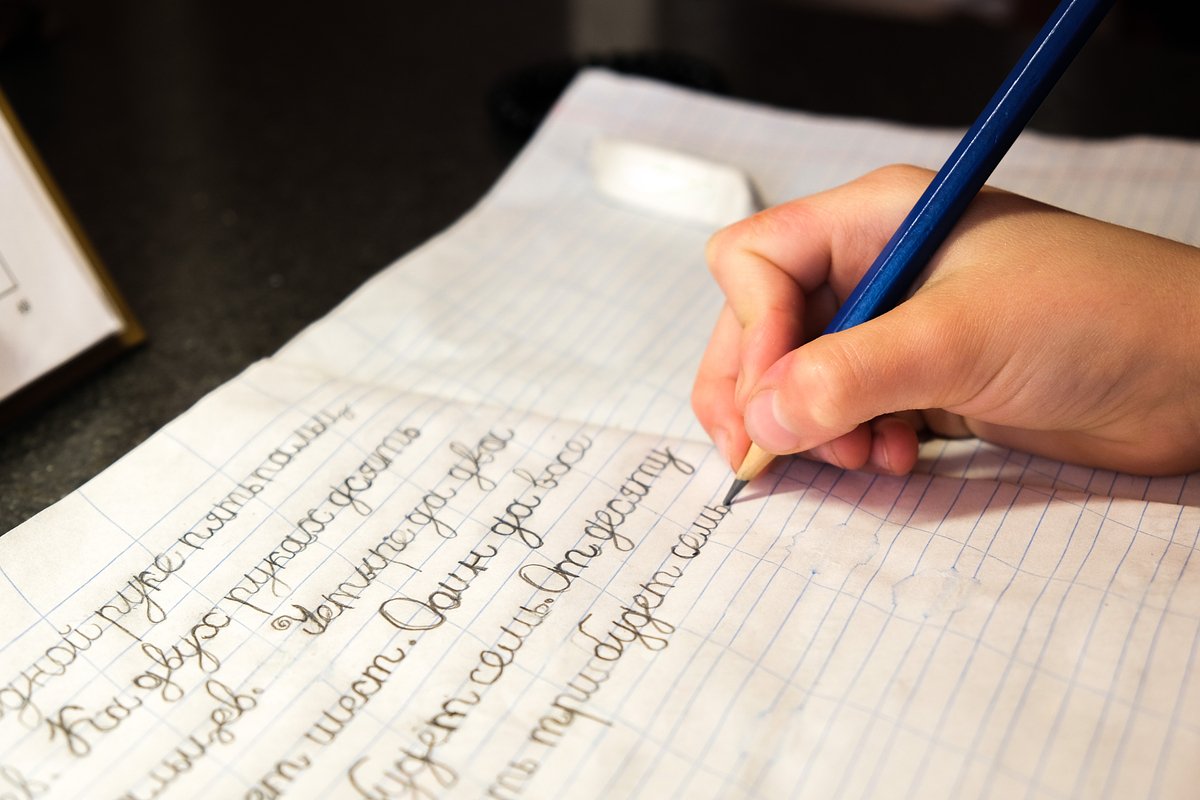 одной руке пять пальц
в. На двух руках десять
альцев. Четыре да два
ет шест. Один да восе
будет семь. От десяти
ть три будет семь